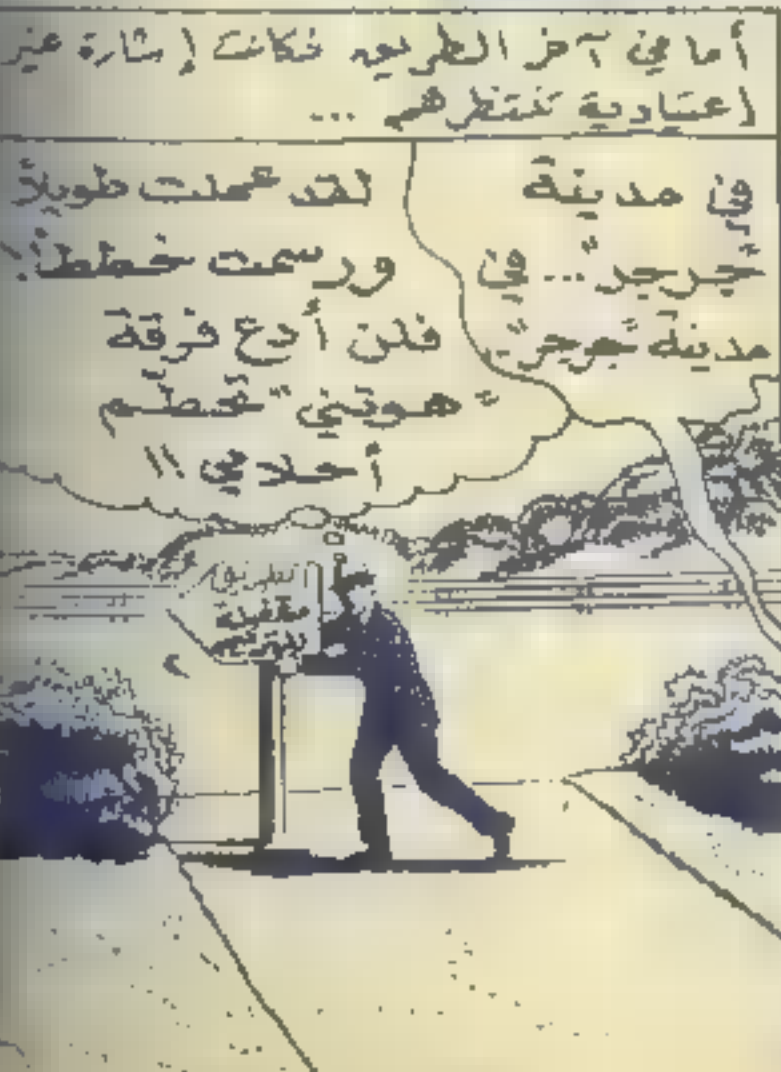 أما في آخر الطريق فكانت إشارة غير
إعتيادية تنتظرهم ...
في مدينة
جرجر"... في
مدينة "جرجر"
لقد عملت طويلاً
ورسمت خططاً!
فلن أدع فرقة
"هوتني" تحطّم
أحلامي !!
الطريق
مقفلة